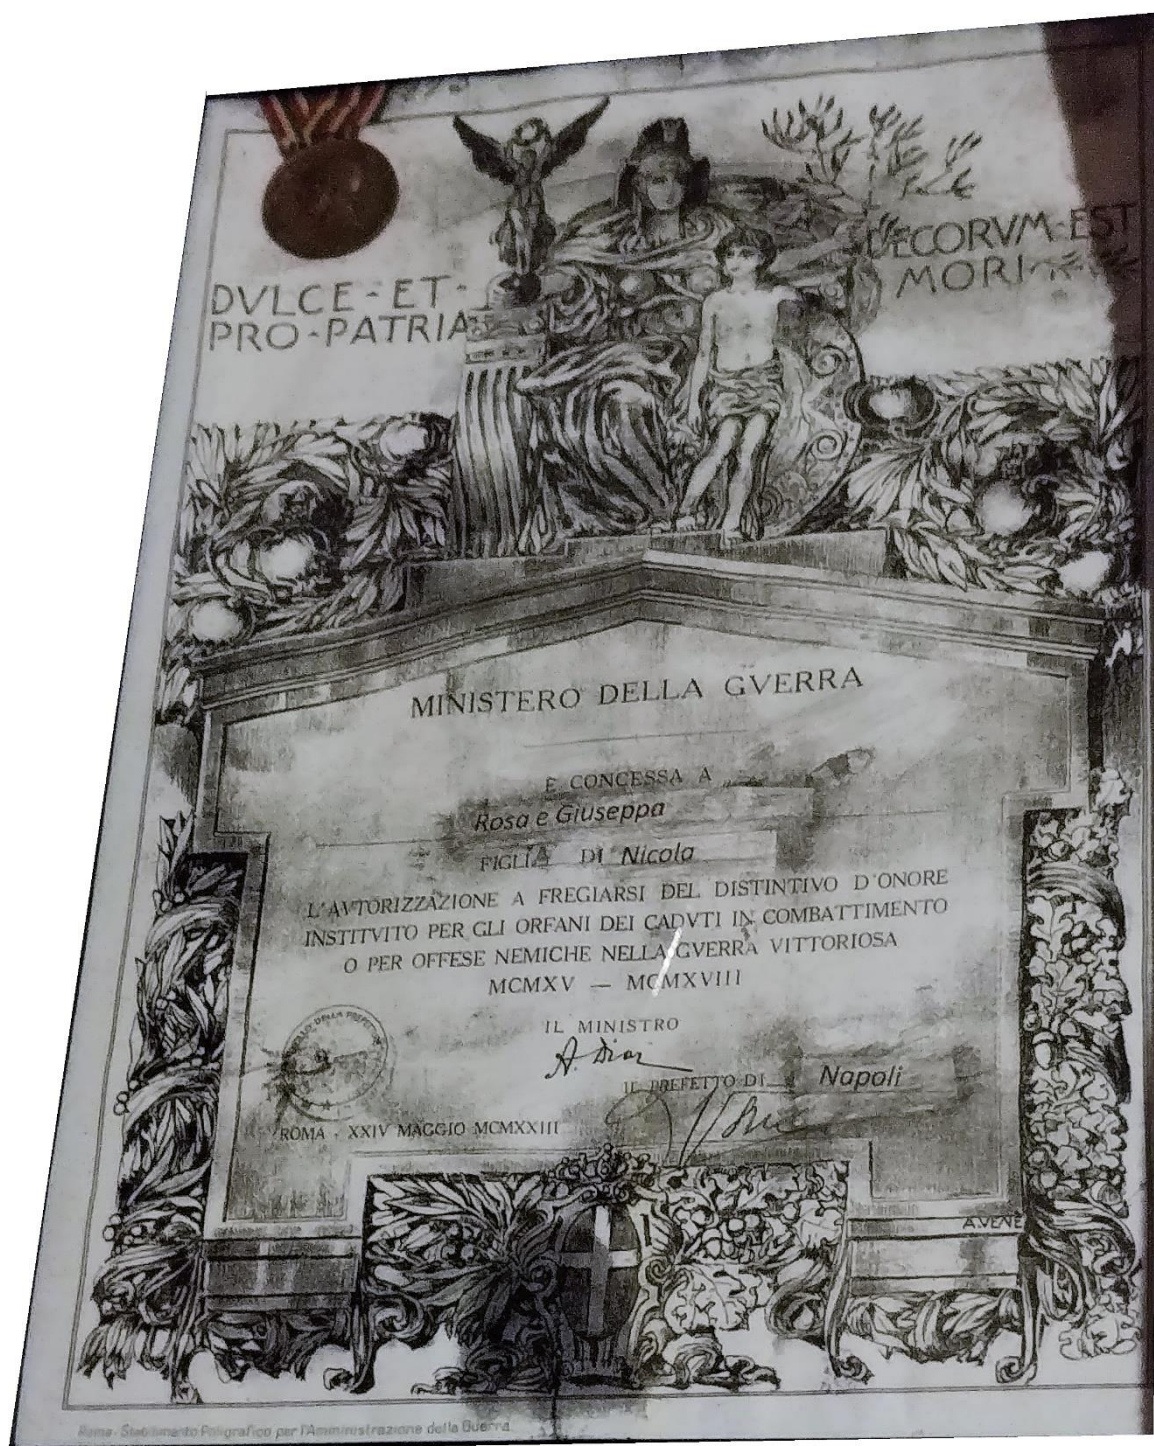 DVLCE-ET-
PRO-PATRIA
DECORVM-EST
MORI
MINISTERO DELLA GVERRA
È CONCESSA A
Rosa e Giuseppa
FIGLIA DI Nicola
L'AVTORIZZAZIONE A FREGIARSI DEL DISTINTIVO D'ONORE
INSTITVITO PER GLI ORFANI DEI CADVTI IN COMBATTIMENTO
O PER OFFESE NEMICHE NELLA GVERRA VITTORIOSA
MCMXV — MCMXVIII
DELLA PREFETTURA
IL MINISTRO
A. Diaz
IL PREFETTO DI Napoli
ROMA - XXIV MAGGIO MCMXXIII
A.VENE
Roma - Stabilimento Poligrafico per l'Amministrazione della Guerra